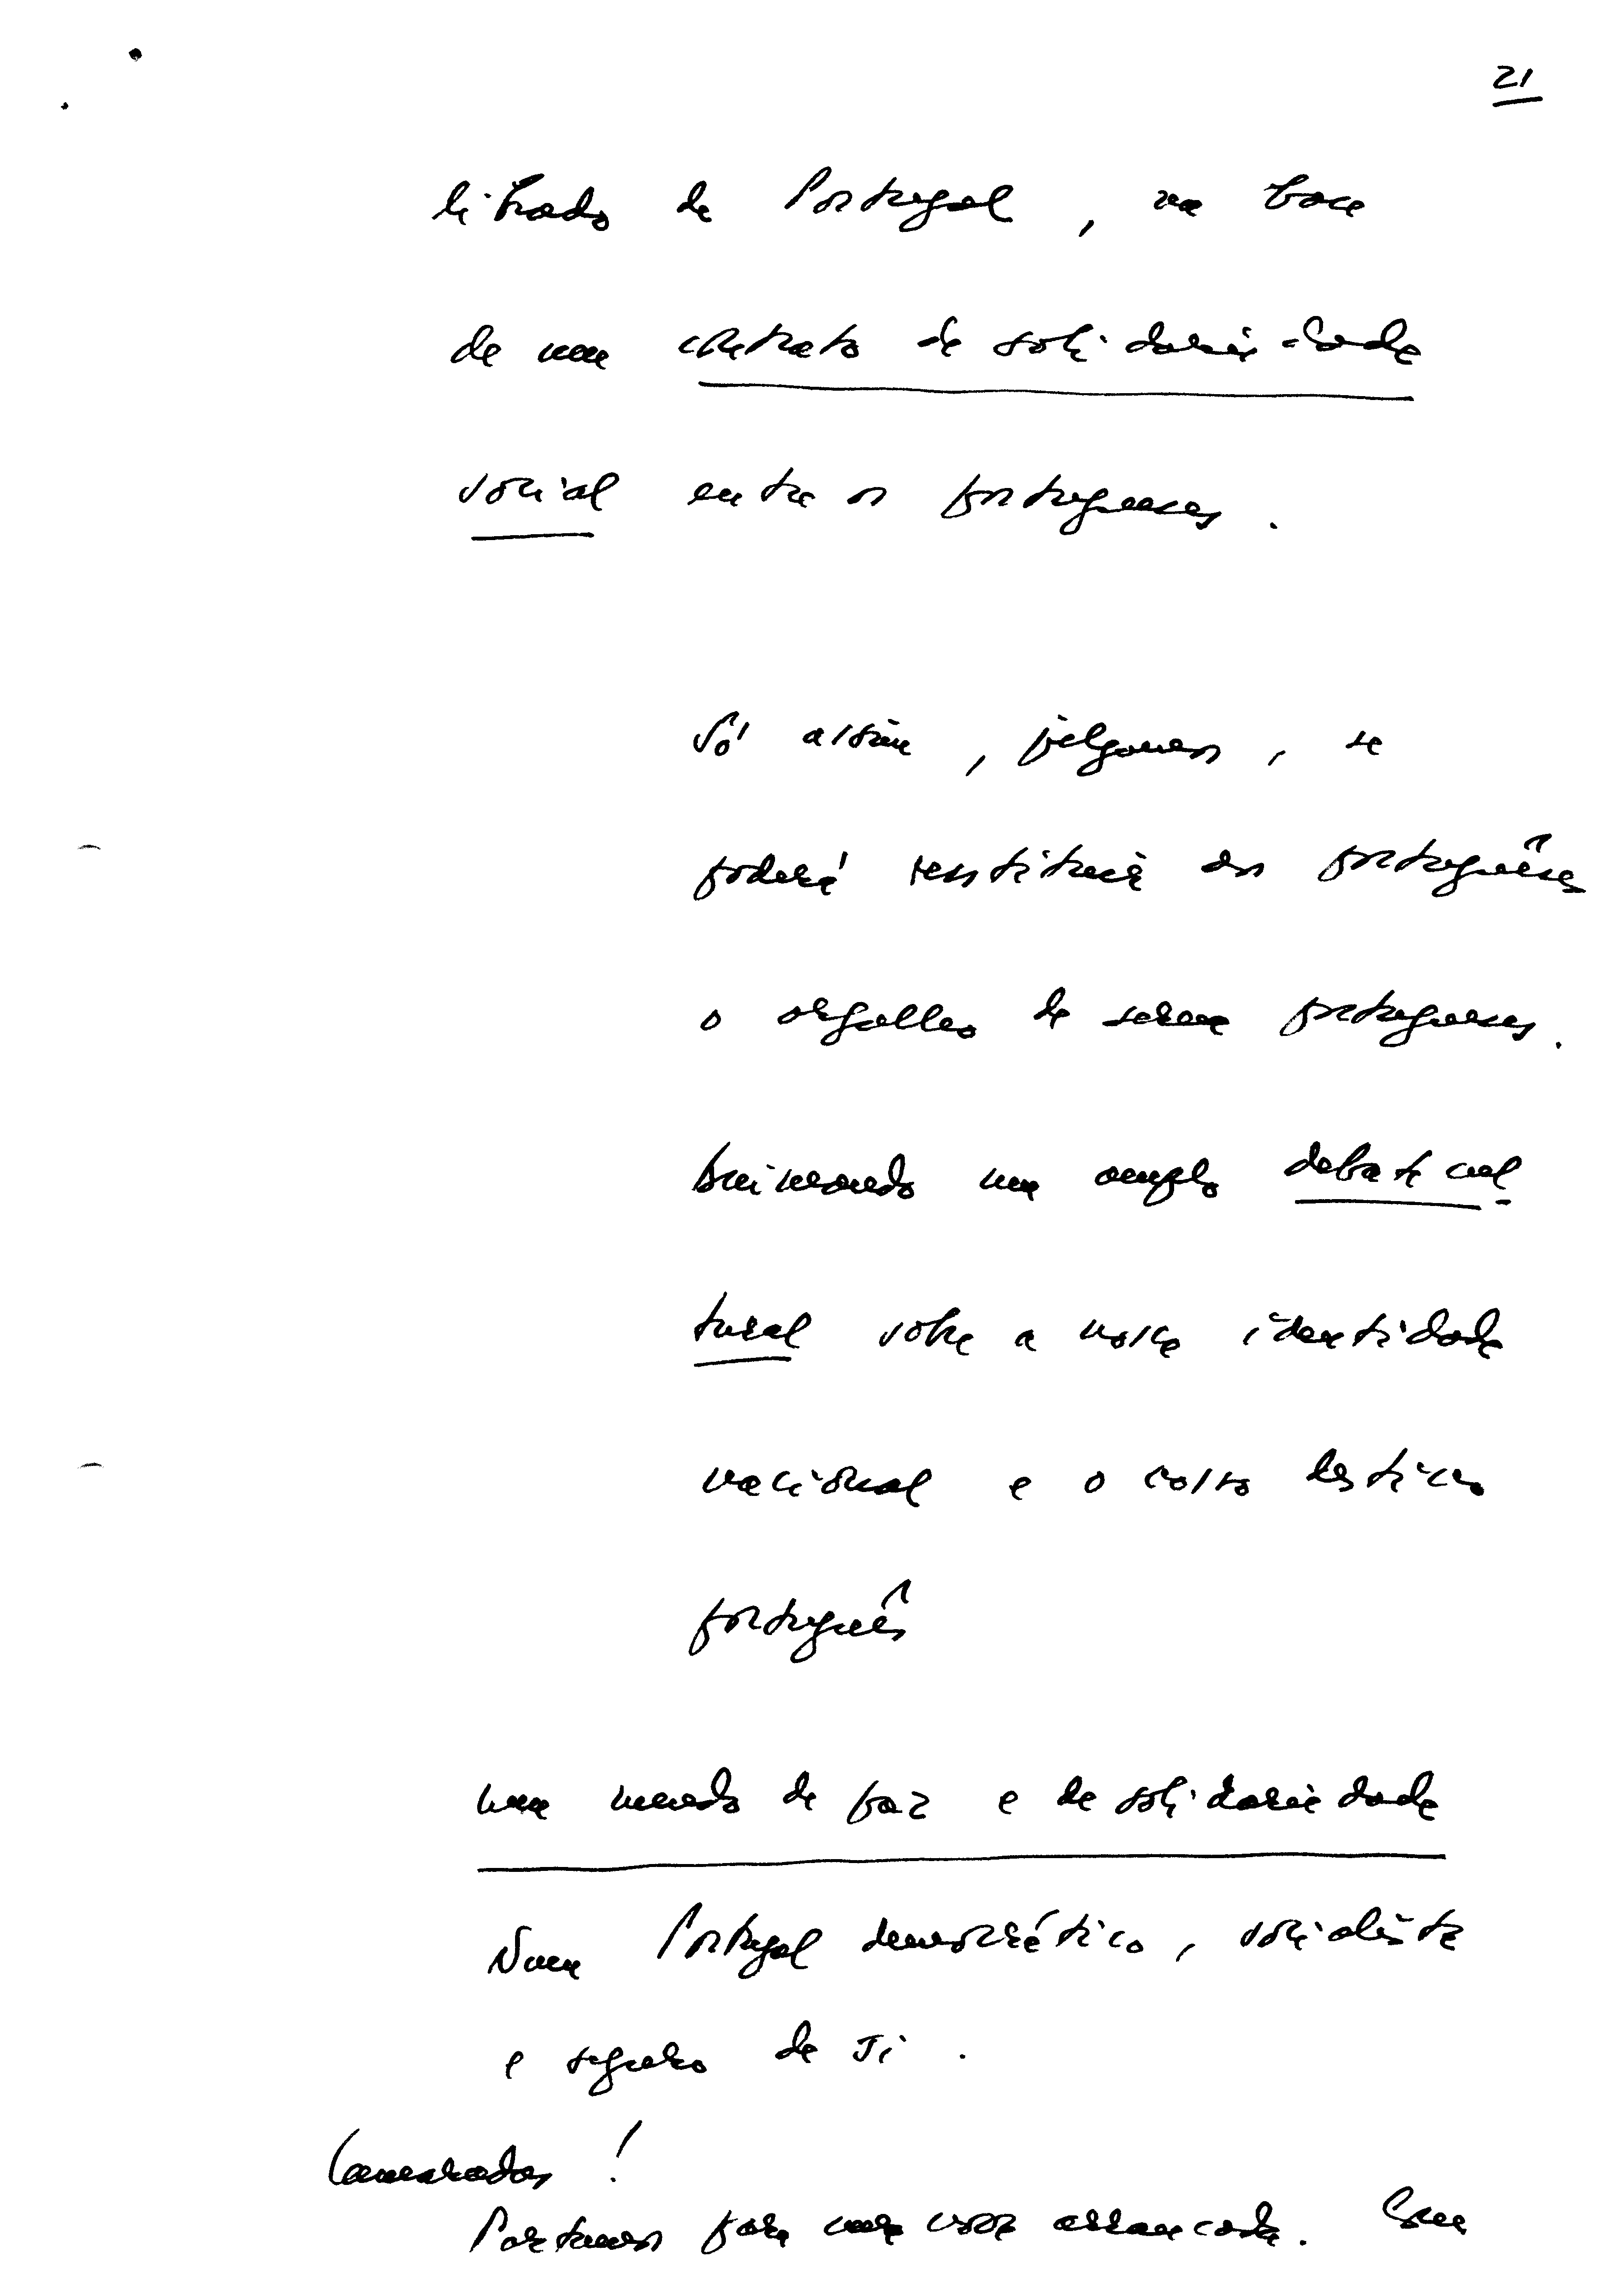 21
librado de Portugal, na base
de um contrato de solidariedade
social entre os portugueses.
Só assim, julgamos, se
poderá restituir aos portuguêses
o orgulho de serem portugueses.
um amplo debate cul
tural sobre a nossa identidade
nacional e o
português
num mundo de paz e de solidariedade
Num Portugal democrático, socialista
e seguro de si.
Camaradas!
Partimos para uma nova arrancada. Com